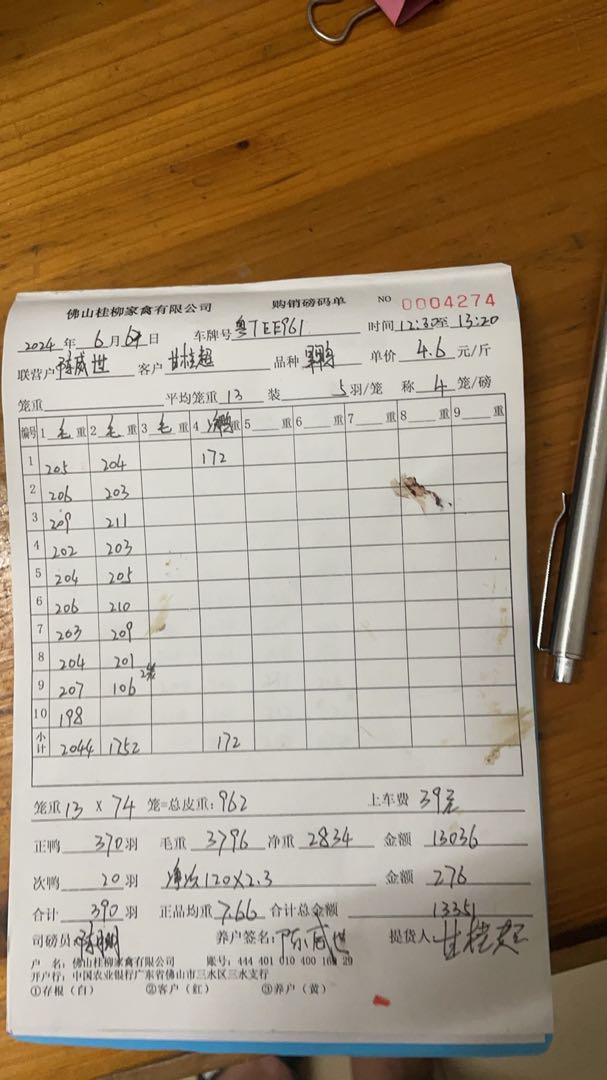 佛山桂柳家禽有限公司 购销磅码单 NO 0004274
2024 年 6 月 日 车牌号 粤TEE961 时间 12:30至 13:20
联营户 陈威世 客户 甘桂超 品种 单价 4.6 元/斤
笼重 平均笼重 13 装 5 羽/笼 称 4 笼/磅
编号 1 毛 重 2 毛 重 3 毛 重 4 重 5 重 6 重 7 重 8 重 9 重
1 205 204 172
2 206 203
3 209 211
4 202 203
5 204 205
6 206 210
7 203 209
8 204 201
9 207 106 2笼
10 198
小计 2044 1752 172
笼重 13 X 74 笼=总皮重: 962 上车费 39元
正鸭 370 羽 毛重 3796 净重 2834 金额 13036
次鸭 20 羽 120X2.3 金额 276
合计 390 羽 正品均重 7.66 合计总金额 13351
司磅员: 养户签名: 陈威世 提货人: 甘桂超
户 名: 佛山桂柳家禽有限公司 账号: 444 401 010 400 168 29
开户行: 中国农业银行广东省佛山市三水区三水支行
①存根（白） ②客户（红） ③养户（黄）